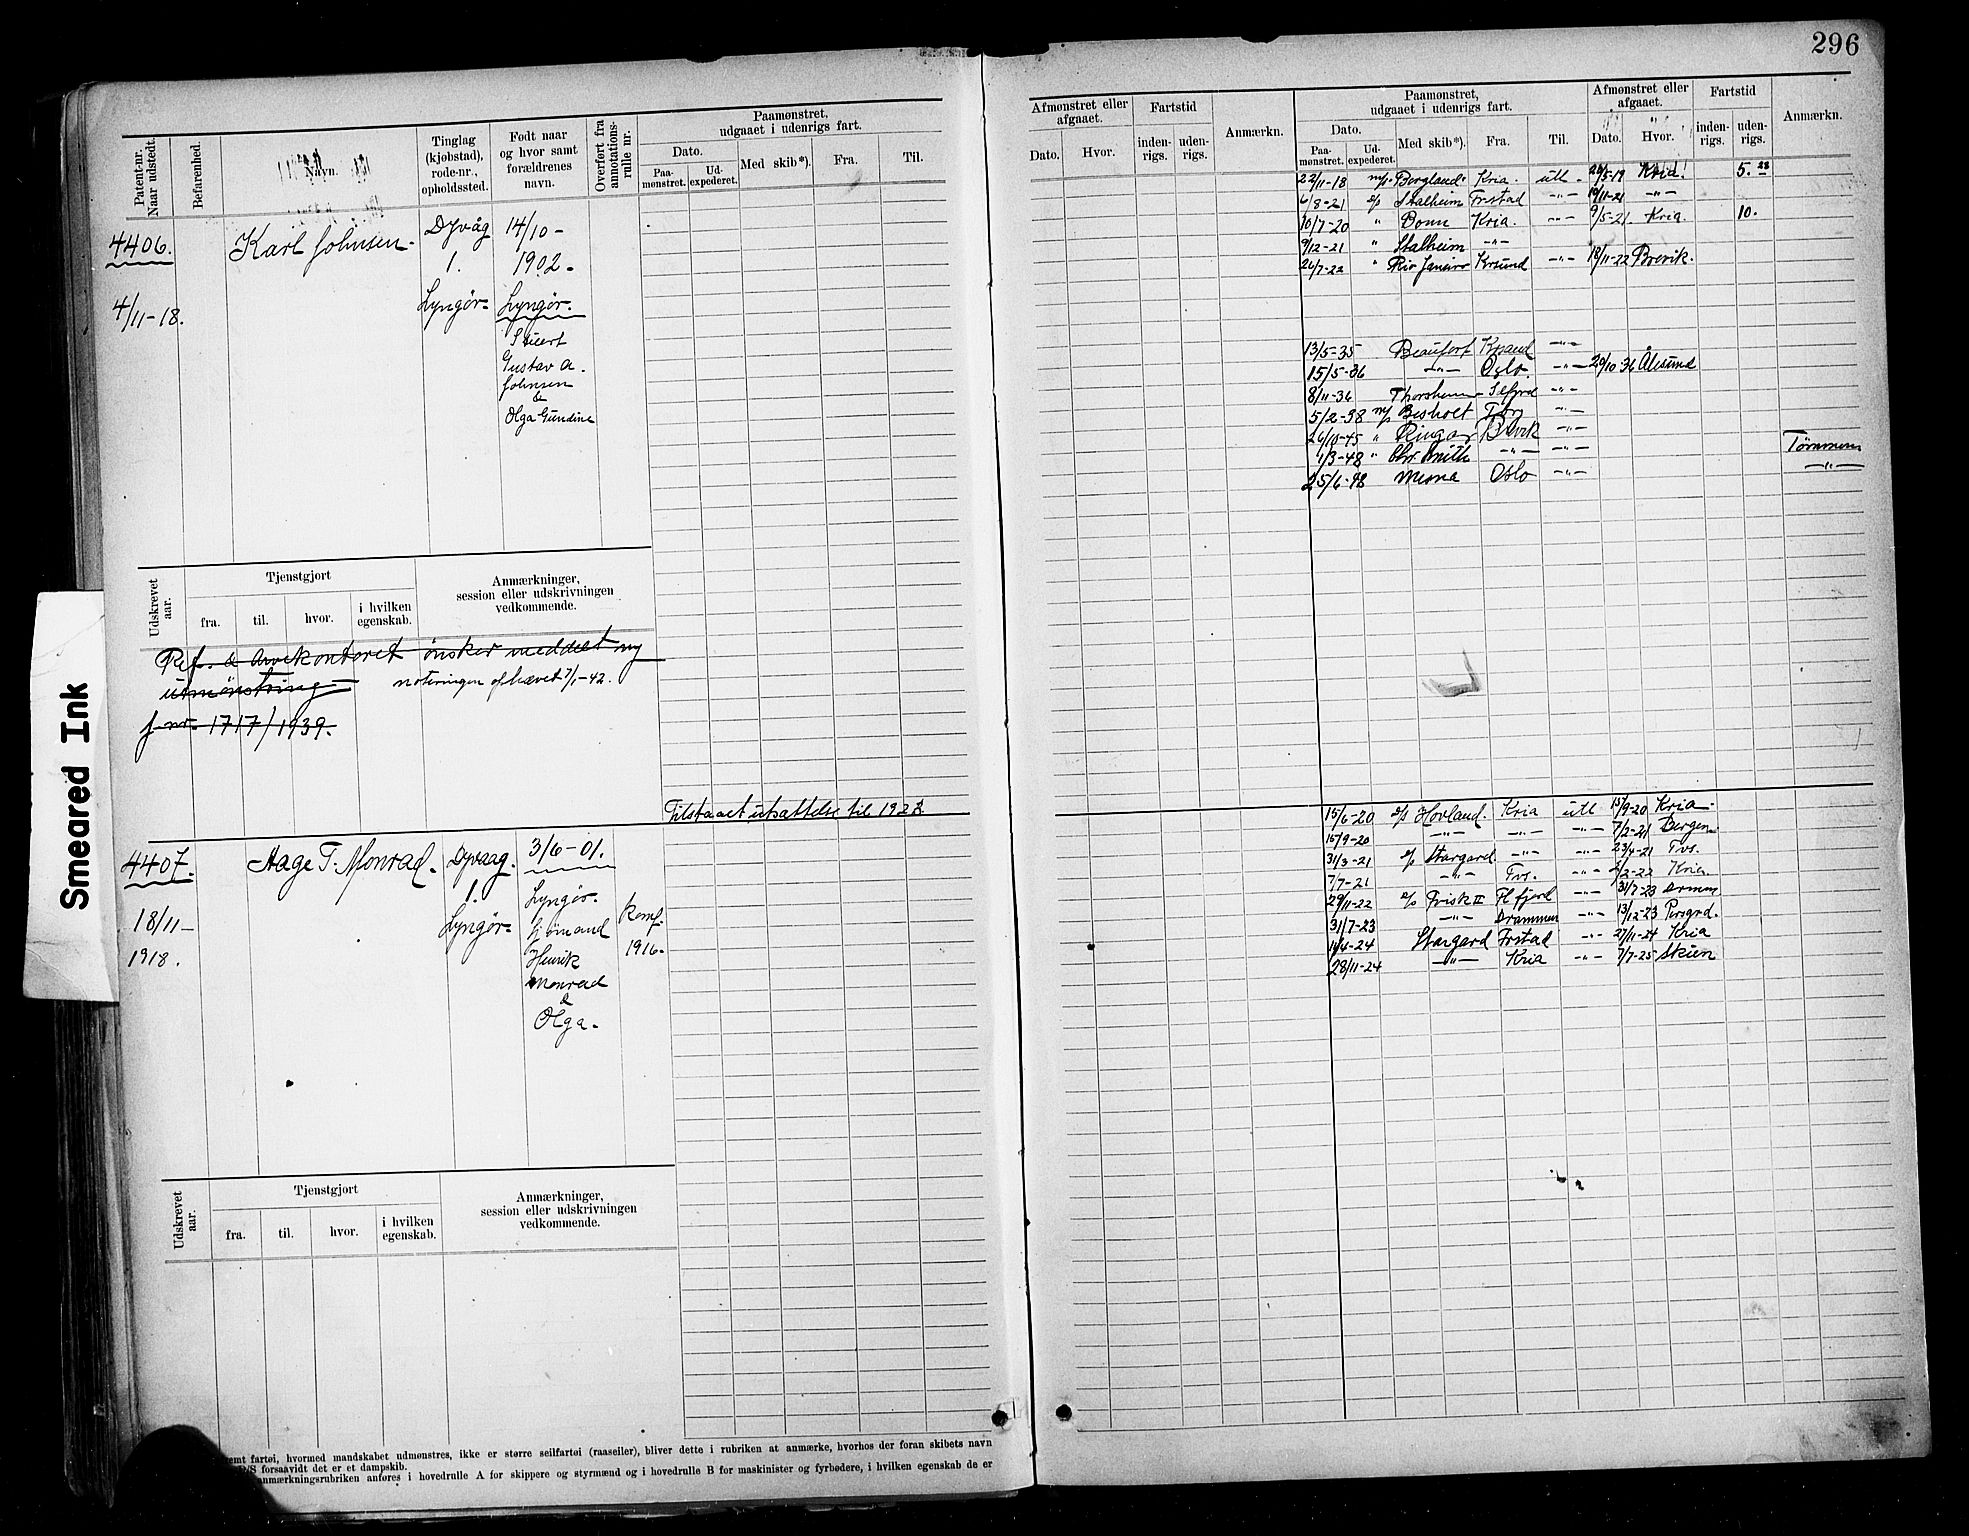 296
Patent-nr. Naar udstedt.
Befarenhed.
Navn.
Tinglag (kjøbstad), rode-nr., opholdssted.
Født naar og hvor samt forældrenes navn.
Overført fra annotations-rulle nr.
Paamønstret, udgaaet i udenrigs fart.
Dato.
Paa-mønstret.
Ud-expederet.
Med skib*).
Fra.
Til.
4406.
4/11-18.
Karl Johnsen.
Dyvåg
1.
Lyngør
14/10-
1902.
Lyngør.
Gustav A.
Johnsen
&
Olga Gundine
Udskrevet aar.
Tjenstgjort
fra.
til.
hvor.
i hvilken egenskab.
Anmærkninger, session eller udskrivningen vedkommende.
Ref. & Arvekontoret ønsker meddelt ny
utmønstring
noteringen ophævet 7/1-42.
j.nr. 1717/1939.
Tilstaaet utsættelse til 1922
4407.
18/11-
1918.
Aage T. Monrad.
Dyvaag.
1.
Lyngør
3/6-01.
Lyngør.
Henrik
Monrad
&
Olga.
1916.
Udskrevet aar.
Tjenstgjort
fra.
til.
hvor.
i hvilken egenskab.
Anmærkninger, session eller udskrivningen vedkommende.
emt fartøi, hvormed mandskabet udmønstres, ikke er større seilfartøi (raaseiler), bliver dette i rubriken at anmærke, hvorhos der foran skibets navn
/S forsaavidt det er et dampskib.
anmærkningsrubriken anføres i hovedrulle A for skippere og styrmænd og i hovedrulle B for maskinister og fyrbødere, i hvilken egenskab de er
Afmønstret eller afgaaet.
Dato.
Hvor.
Fartstid
inden-rigs.
uden-rigs.
Anmærkn.
Paamønstret, udgaaet i udenrigs fart.
Dato.
Paa-mønstret.
Ud-expederet.
Med skib*).
Fra.
Til.
Afmønstret eller afgaaet.
Dato.
Hvor.
Fartstid
inden-rigs.
uden-rigs.
Anmærkn.
22/11-18 m/s Borgland Kria. utl. Kria.
6/8-21 s/s Stalheim Frstad -"- 10/11-21 -"-
10/7-20 " Kria. -"- 9/5-21 Kria. 10.
9/12-21 " Stalheim -"-
26/7-22 " Rio Janeiro Krsund -"- 18/11-22 Brevik.
13/5-35 Beaufort Krsand -"-
15/5-36 -"- Oslo. -"- 29/10-36 Ålesund
8/11-36 -"-
5/2-38 m/s -"-
26/10-45 " -"-
1/3-48 " Chr. Smith -"- -"- Tømmerm
25/6-48 Mesna Oslo -"- -"-
15/6-20 s/s Hovland. Kria utl 15/9-20 Kria.
15/9-20 -"- -"- -"- 7/2-21 Bergen
31/3-21 s/s Stargard -"- -"- 23/4-21 Tvs.
7/7-21 -"- Tvs. -"- Kria.
29/11-22 s/s Frisk II Fl fjord -"- 31/7-23
31/7-23 -"- Drammen -"- 13/12-23 Porsgrd.
Stargard Frstad -"- 27/11-24 Kria
28/11-24 -"- Kria -"- 7/7-25 Skien
Smeared Ink